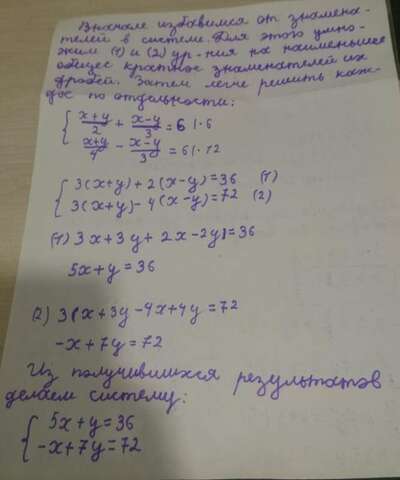 Вначале избавимся от знамена-
телей в системе. Для этого умно-
жим (1) и (2) ур-ния на наименьшее
общее кратное знаменателей их
дробей. Затем легче решить каж-
дое по отдельности:
{ (x+y)/2 + (x-y)/3 = 6 |·6
(x+y)/4 - (x-y)/3 = 6 |·12
{ 3(x+y)+2(x-y)=36 (1)
3(x+y)-4(x-y)=72 (2)
(1) 3x+3y+2x-2y=36
5x+y=36
(2) 3x+3y-4x+4y=72
-x+7y=72
Из получившихся результатов
делаем систему:
{ 5x+y=36
-x+7y=72